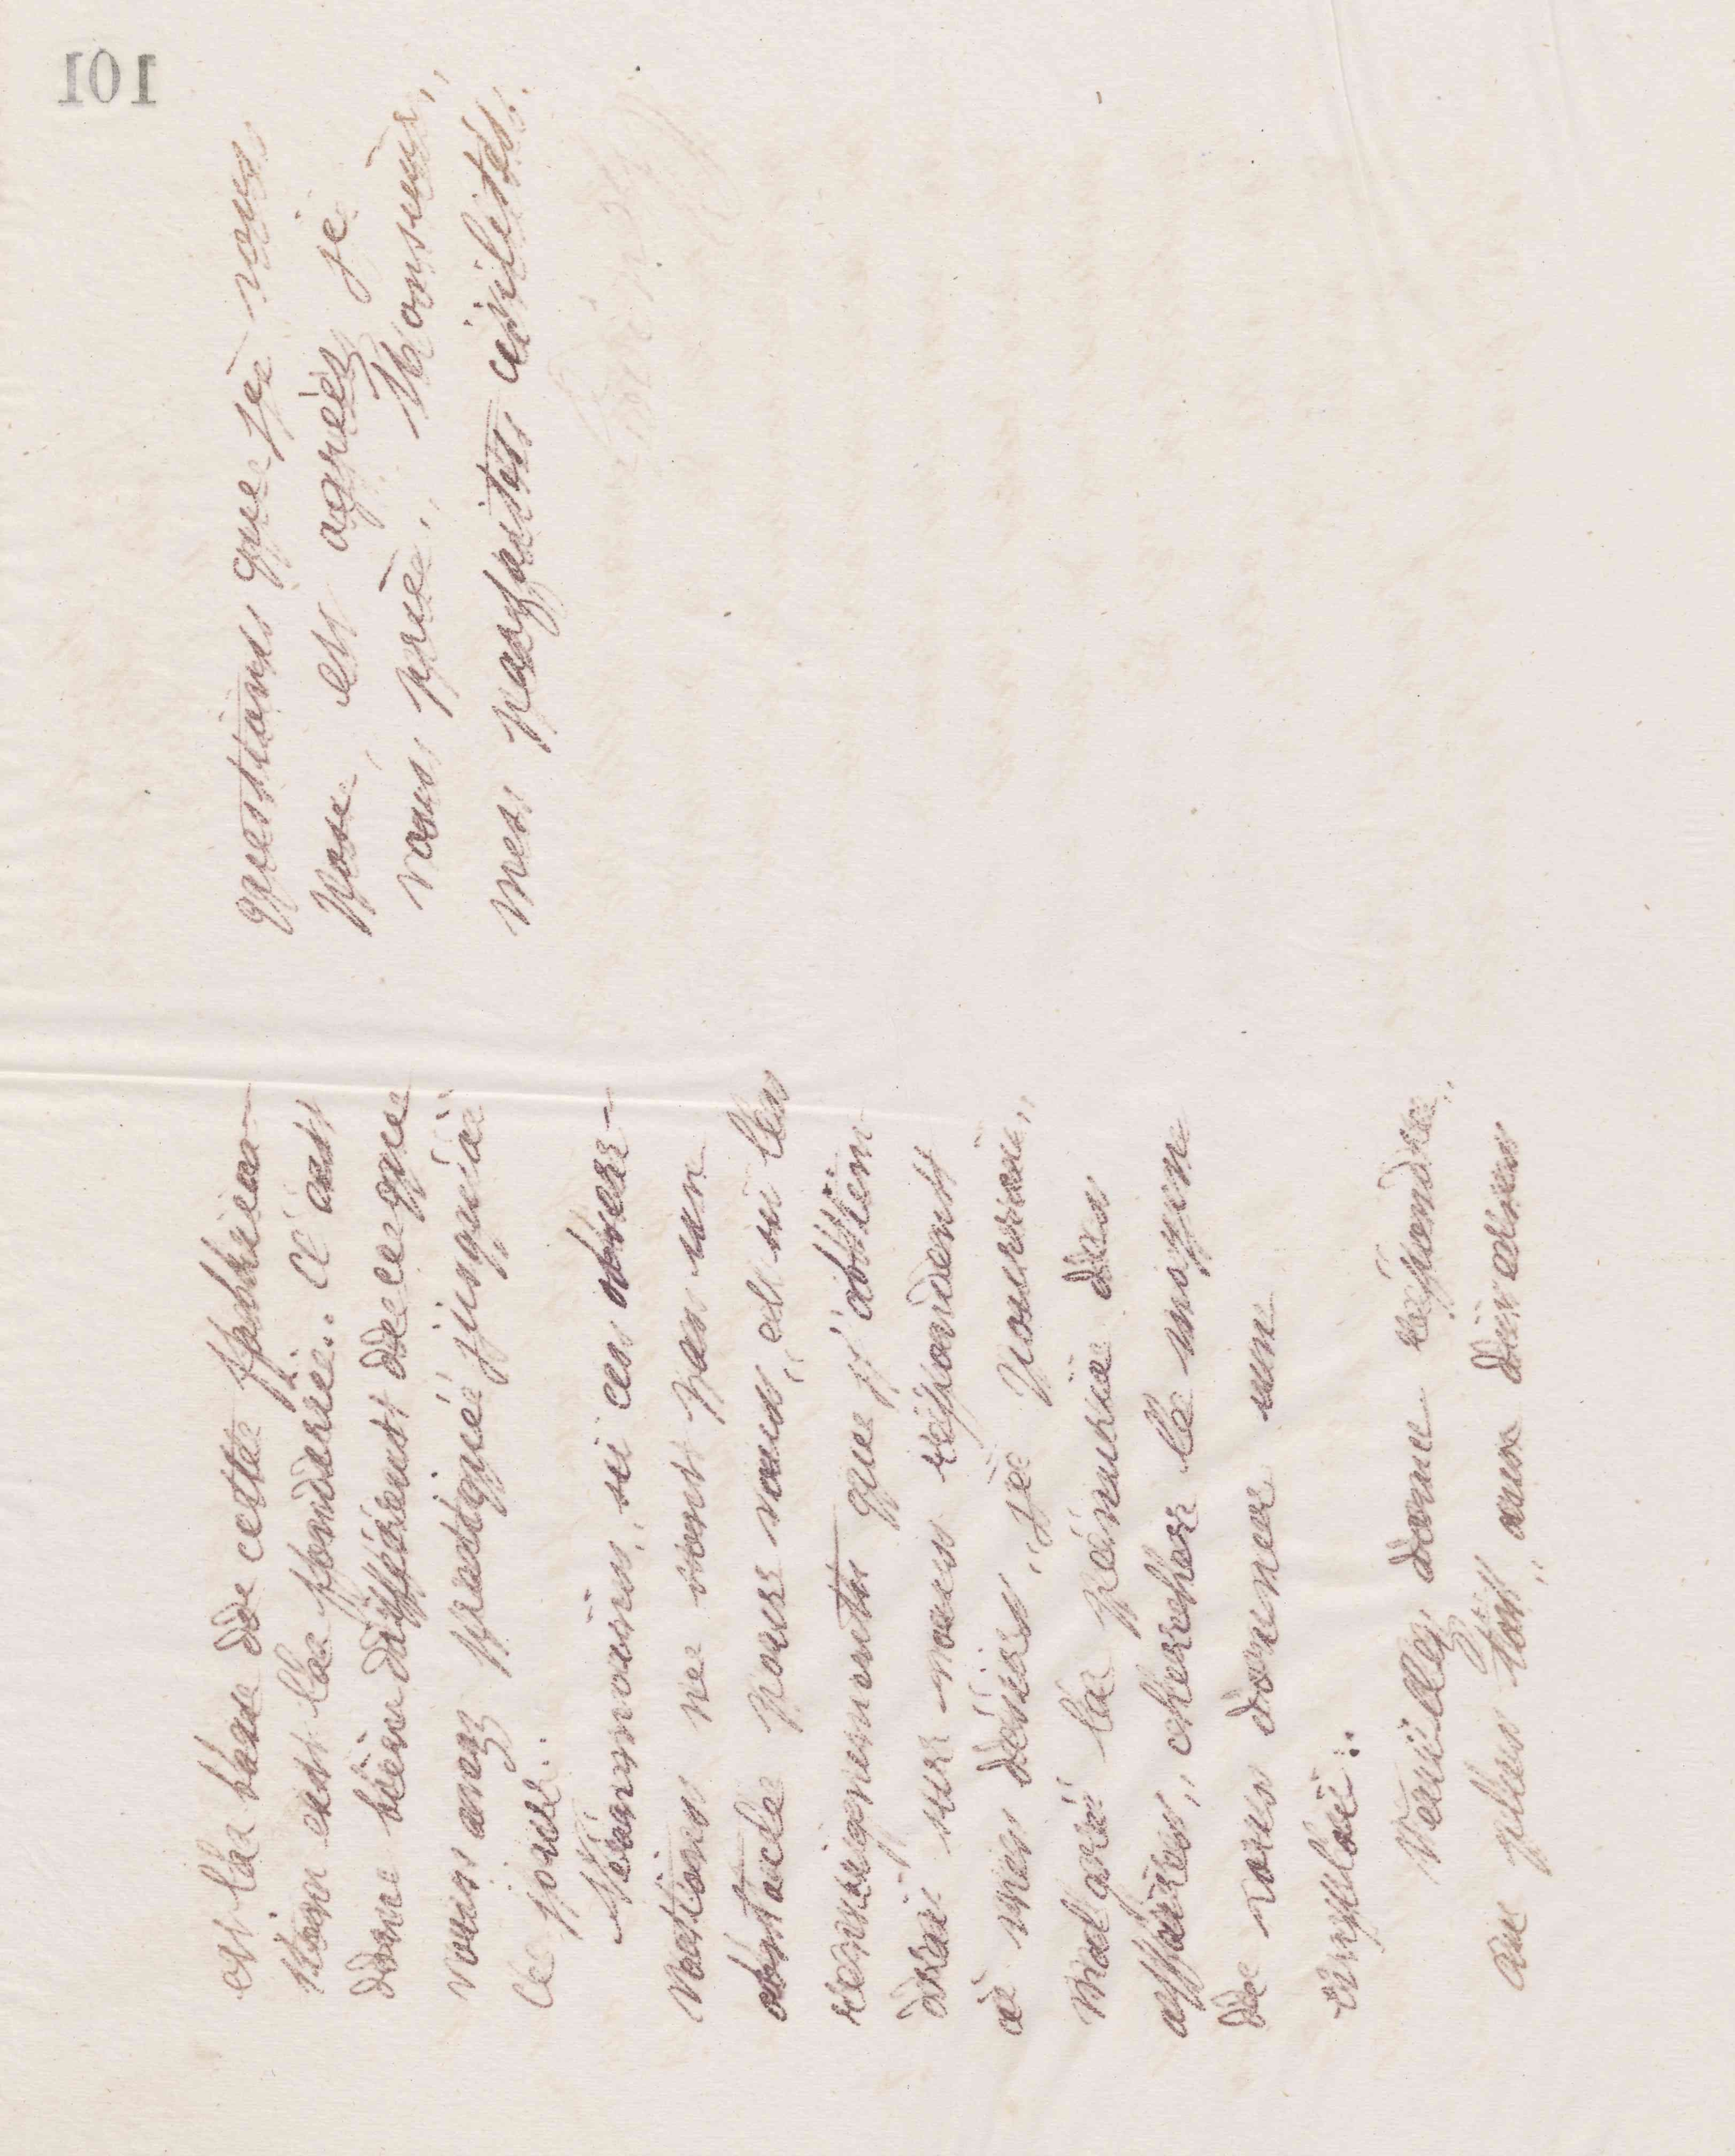 101
et la base de cette fabrica-
tion est la fonderie. C'est
donc bien différent de ce que
vous avez pratiqué jusqu'à
ce jour.
Néanmoins, si ces obser-
vations ne sont pas un
obstacle pour vous, et si les
renseignements que j'obtien-
drai sur vous répondent
à mes désirs, je pourrai,
malgré la pénurie des
affaires, chercher le moyen
de vous donner un
emploi.
Veuillez donc répondre,
au plus tôt, aux diverses
questions que je vous
pose, et agréez je
vous prie, Monsieur,
mes parfaites civilités.